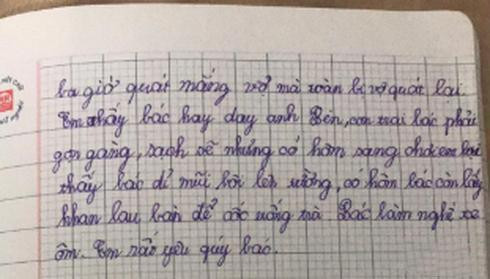 ba giờ quát mắng vợ mà toàn bị vợ quát lại.
Em thấy bác hay dạy anh Bên, con trai bác phải
gọn gàng, sạch sẽ nhưng có hôm sang chơi em lại
thấy bác dí mũi bôi lên tường, có hôm bác còn lấy
khăn lau bàn để cốc uống trà. Bác làm nghề xe
ôm. Em rất yêu quý bác.